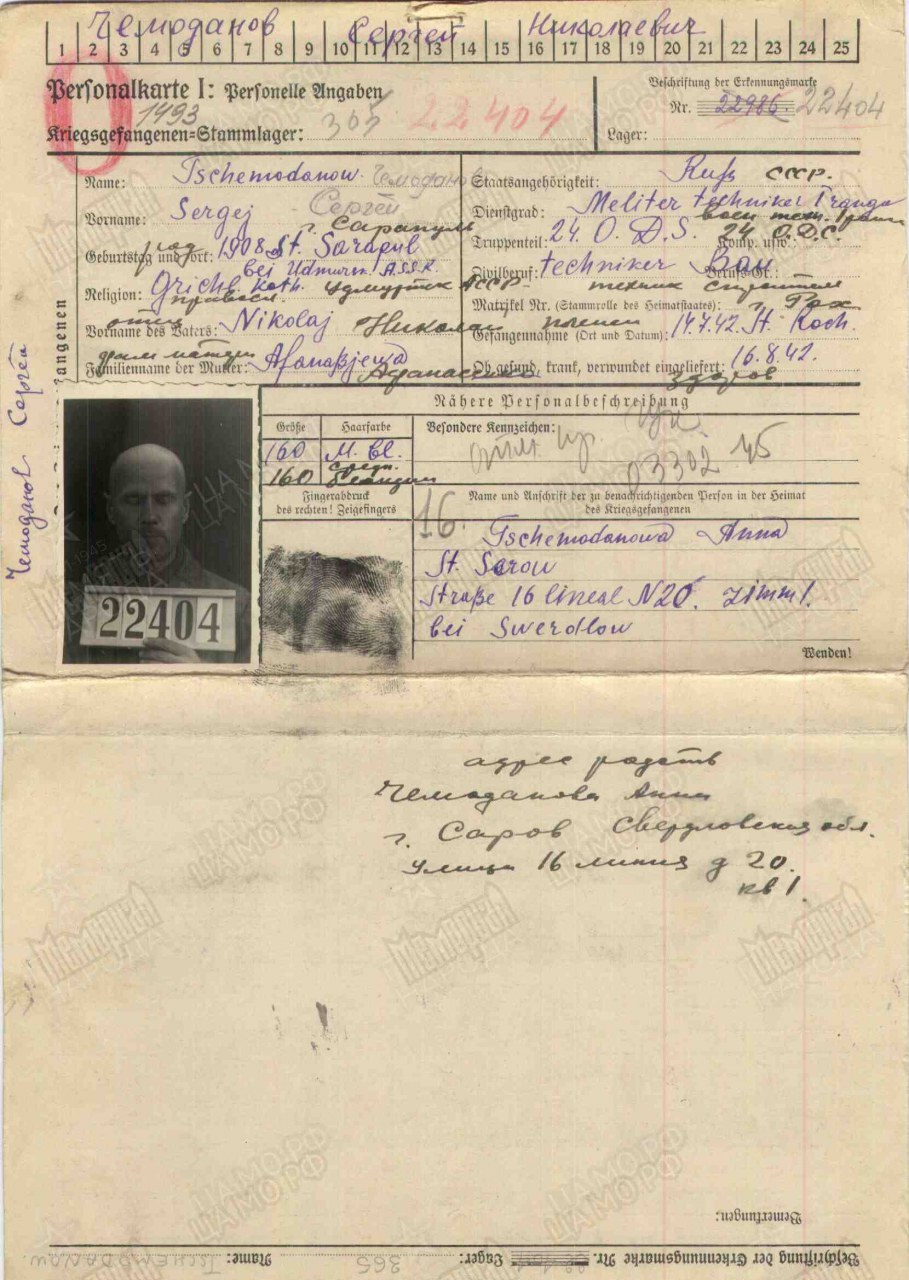 Чемоданов Сергей Николаевич
1 2 3 4 5 6 7 8 9 10 11 12 13 14 15 16 17 18 19 20 21 22 23 24 25
Personalkarte I: Personelle Angaben
1493
Kriegsgefangenen=Stammlager: 305 22404
Beschriftung der Erkennungsmarke
Nr. 22986. 22404
Lager:
Name: Tschemodanow Чемоданов
Vorname: Sergej Сергей
г. Сарапуль
Geburtstag und =ort: 1908. St. Sarapul
bei Udmurn. A.S.S.R.
Religion: Grich. Kath. Удмуртск АССР
правосл.
отец
Vorname des Vaters: Nikolaj Николай
Familienname der Mutter: Afonaßjewa
Staatsangehörigkeit: Ruß СССР.
Dienstgrad: Meliter techniker I ranga
воен тех. I ранга
Truppenteil: 24. O. D. S. 24 О.Д.С. Komp. usw.:
Zivilberuf: techniker Bau Berufs-Gr.:
техник строитель
Matrikel Nr. (Stammrolle des Heimatstaates):
пленен
Gefangennahme (Ort und Datum): 14.7.42. St. Roch.
Ob gesund, krank, verwundet eingeliefert: 16.8.42.
здоров
Nähere Personalbeschreibung
Größe Haarfarbe
160 M. bl.
160
Fingerabdruck
des rechten! Zeigefingers
Besondere Kennzeichen:
03302 45
16.
Name und Anschrift der zu benachrichtigenden Person in der Heimat
des Kriegsgefangenen
Tschemodanowa Anna
St. Sarow
Straße 16 lineal N 20. zimm 1.
bei Swerdlow
Wenden!
Чемоданов Сергей
angenen
22404
адрес родств
Чемоданова Анна
г. Саров Свердловская обл.
улица 16 линия д 20.
кв 1.
Bemerkungen:
Beschriftung der Erkennungsmarke Nr. Lager: 365 Name: TSCHEMODANOW
Мемориал
НАРОДА
ЦАМО.РФ
ЦАМО РФ